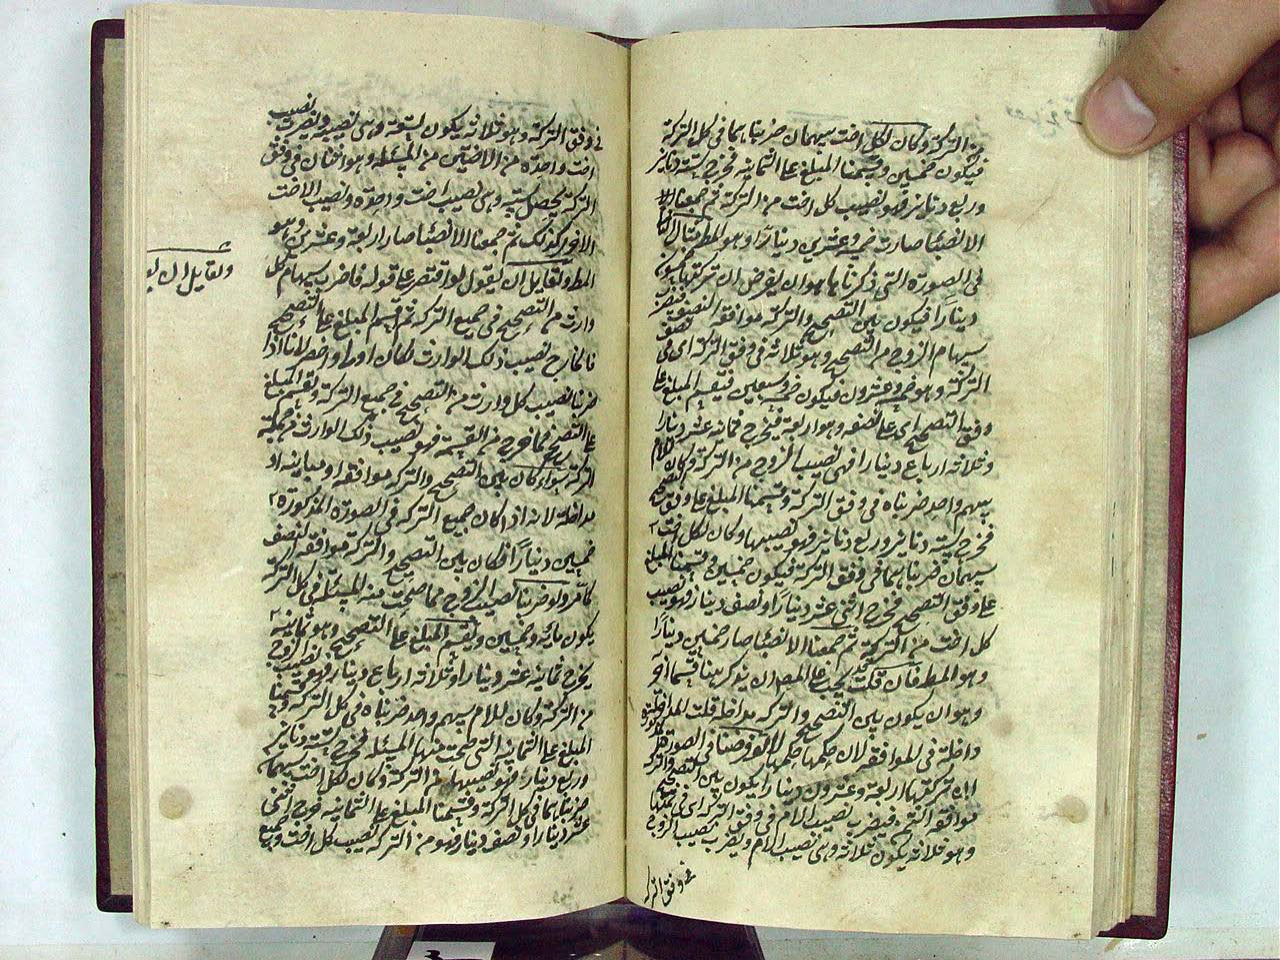 من التركة وكان لكل اخت سهمان ضربناهما في كل التركة
فيكون خمسين وقسمنا المبلغ على الثمانية فخرج ستة دنانير
وربع دينار فهو نصيب كل اخت من التركة ثم جمعنا
الانصباء صارت خمسة وعشرين دينارا وهو المط
في الصورة التي ذكرناها هو ان يفرض ان تركتها خمسون
دينارا فيكون بين التصحيح والتركة موافقة النصف فتضرب
سهام الزوج من التصحيح وهو ثلاثة في وفق التركة اي في نصف
التركة وهو خمسة وعشرون فيكون خمسة وسبعين فيقسم المبلغ على
وفق التصحيح اي على نصفه وهو اربعة فيخرج ثمانية عشر دينارا
وثلاثة ارباع دينار فهي نصيب الزوج من التركة وكان للام
سهم واحد ضربناه في وفق التركة وقسمنا المبلغ على وفق التصحيح
فخرج ستة دنانير وربع دينار فهو نصيبها وكان لكل اخت
سهمان ضربناهما في وفق التركة فيكون خمسين وقسمنا المبلغ
على وفق التصحيح فخرج اثنى عشر دينارا ونصف دينار وهو نصيب
كل اخت من التركة ثم جمعنا الانصباء صار خمسين دينارا
وهو المط فان قلت يجب على المص ان يذكر هنا قسما آخر
وهو ان يكون بين التصحيح والتركة مداخلة قلت المداخلة
داخلة في الموافقة لان حكمها حكمها لو فرضنا في الصورة
ان تركتها اربعة وعشرون دينارا يكون بين التصحيح والتركة
موافقة الثمن فيضرب نصيب الام في وفق التركة اي في ثمنها
وهو ثلاثة يكون ثلاثة وهي نصيب الام ويضرب نصيب الزوج
في وفق التركة
في وفق التركة وهو ثلاثة يكون تسعة وهي نصيبه ويضرب نصيب
اخت واحدة من الاختين من المسئلة وهو اثنان في وفق
التركة يحصل ستة وهي نصيب اخت واحدة ونصيب الاخت
الاخرى كذلك ثم جمعنا الانصباء صار اربعة وعشرين وهو
المط ولقايل ان يقول لو اقتصر على قوله فاضرب سهام كل
وارث من التصحيح في جميع التركة ثم قسم المبلغ على التصحيح
فالخارج نصيب ذلك الوارث لكان اولى واخصر لانا اذا
ضربنا نصيب كل وارث من التصحيح في جميع التركة وقسم المبلغ
على التصحيح فما خرج من القسمة فهو نصيب ذلك الوارث من جملة
التركة سواء كان بين التصحيح والتركة موافقة او مباينة او
مداخلة لانه اذا كان جميع التركة في الصورة المذكورة
خمسين دينارا فكان بين التصحيح والتركة موافقة النصف
كما مر ولو ضربنا نصيب الزوج مما صحت منه المسئلة في كل التركة
يكون مائة وخمسين ويقسم المبلغ على التصحيح وهو ثمانية
يخرج ثمانية عشر دينارا وثلاثة ارباع دينار فهو نصيب الزوج
من التركة وكان للام سهم واحد ضربناه في كل التركة وقسمنا
المبلغ على الثمانية التي صحت منها المسئلة فخرج ستة دنانير
وربع دينار فهو نصيبها من التركة وكان لكل اخت سهمان
ضربناهما في كل التركة وقسمنا المبلغ على الثمانية فخرج اثنى
عشر دينارا ونصف دينار فهو من التركة نصيب كل اخت وجميع
ولقايل ان يقو